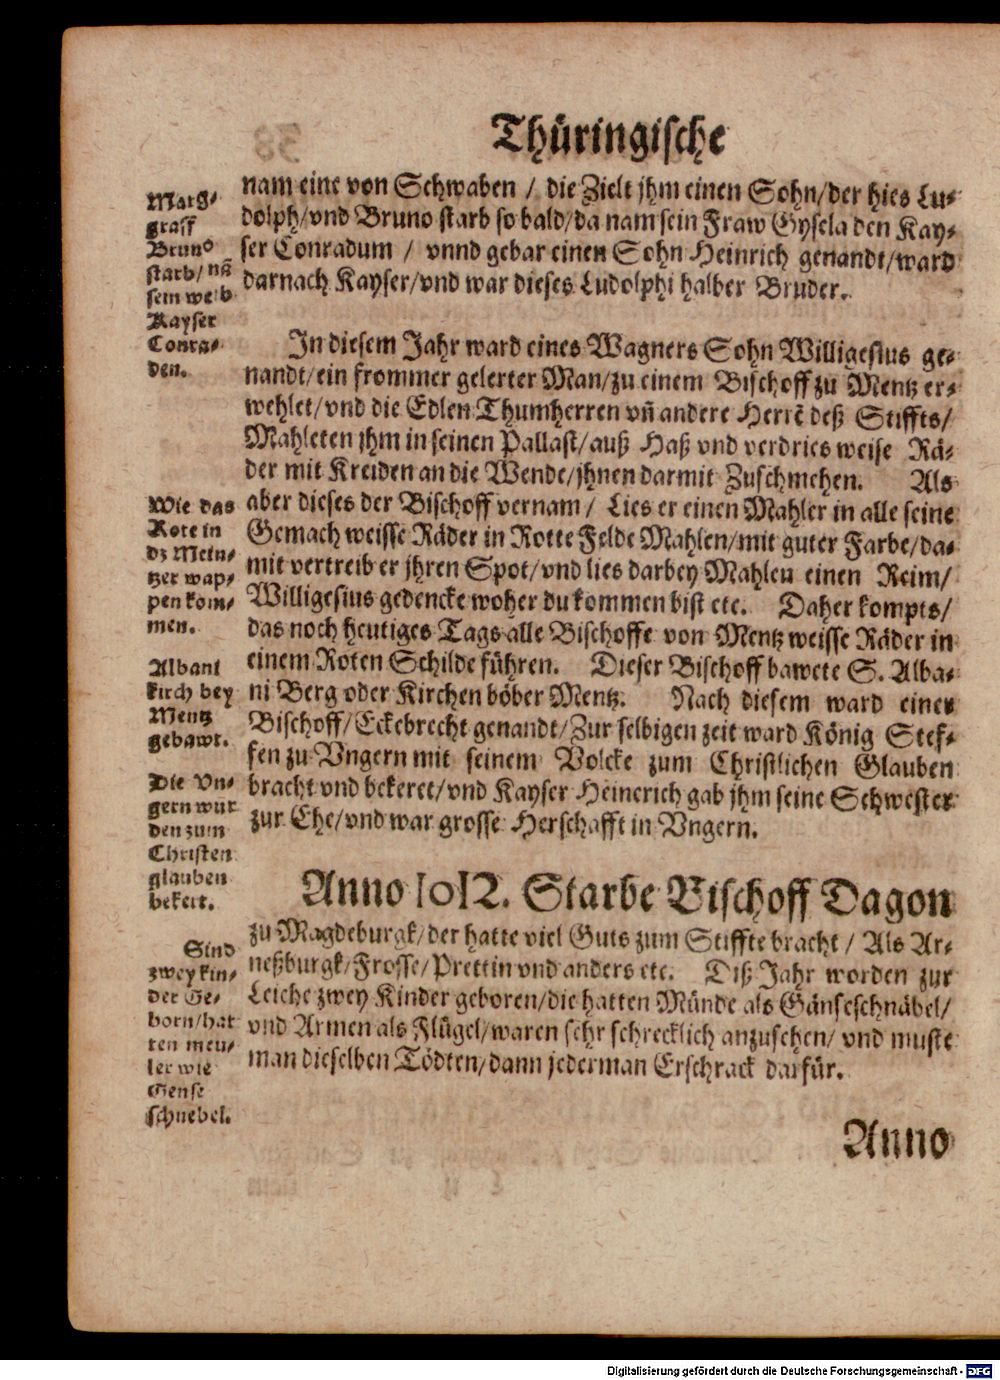 Thüringische
Marg-
graff
Bruno
starb/ nn̄
sein weib
Kayser
Conra-
den.
nam eine von Schwaben / die Zielt jhm einen Sohn/der hies Lu-
dolph/vnd Bruno starb so bald/da nam sein Fraw Gysela den Kay-
ser Conradum / vnnd gebar einen Sohn Heinrich genandt/ward
darnach Kayser/vnd war dieses Ludolphi halber Bruder.
In diesem Jahr ward eines Wagners Sohn Willigesius ge-
nandt/ein frommer gelerter Man/zu einem Bischoff zu Mentz er-
wehlet/vnd die Edlen Thumherren vn̄ andere Herrē deß Stiffts/
Mahleten jhm in seinen Pallast/auß Haß vnd verdries weise Rä-
der mit Kreiden an die Wende/jhnen darmit Zuschmehen. Als
aber dieses der Bischoff vernam / Lies er einen Mahler in alle seine
Gemach weisse Räder in Rotte Felde Mahlen/mit guter Farbe/da-
mit vertreib er jhren Spot/vnd lies darbey Mahlen einen Reim/
Willigesius gedencke woher du kommen bist etc. Daher kompts/
das noch heutiges Tags alle Bischoffe von Mentz weisse Räder in
einem Roten Schilde führen. Dieser Bischoff bawete S. Alba-
ni Berg oder Kirchen böber Mentz. Nach diesem ward einer
Bischoff/Eckebrecht genandt/Zur selbigen zeit ward König Stef-
fen zu Vngern mit seinem Volcke zum Christlichen Glauben
bracht vnd bekeret/vnd Kayser Heinerich gab jhm seine Schwester
zur Ehe/vnd war grosse Herschafft in Vngern.
Wie das
Rote in
dz Mein-
tzer wap-
pen kom-
men.
Albani
kirch bey
Mentz
gebawt.
Die Vn-
gern wur
den zum
Christen
glauben
bekert.
Anno 1012. Starbe Bischoff Dagon
zu Magdeburgk/der hatte viel Guts zum Stiffte bracht / Als Ar-
neßburgk/Frosse/Prettin vnd anders etc. Diß Jahr worden zur
Leiche zwey Kinder geboren/die hatten Münde als Gänseschnäbel/
vnd Armen als Flügel/waren sehr schrecklich anzusehen/ vnd muste
man dieselben Tödten/dann jederman Erschrack darfür.
Sind
zwey kin-
der Ge-
born/hat
ten meu-
ler wie
Gense
schnebel.
Anno
Digitalisierung gefördert durch die Deutsche Forschungsgemeinschaft - DFG